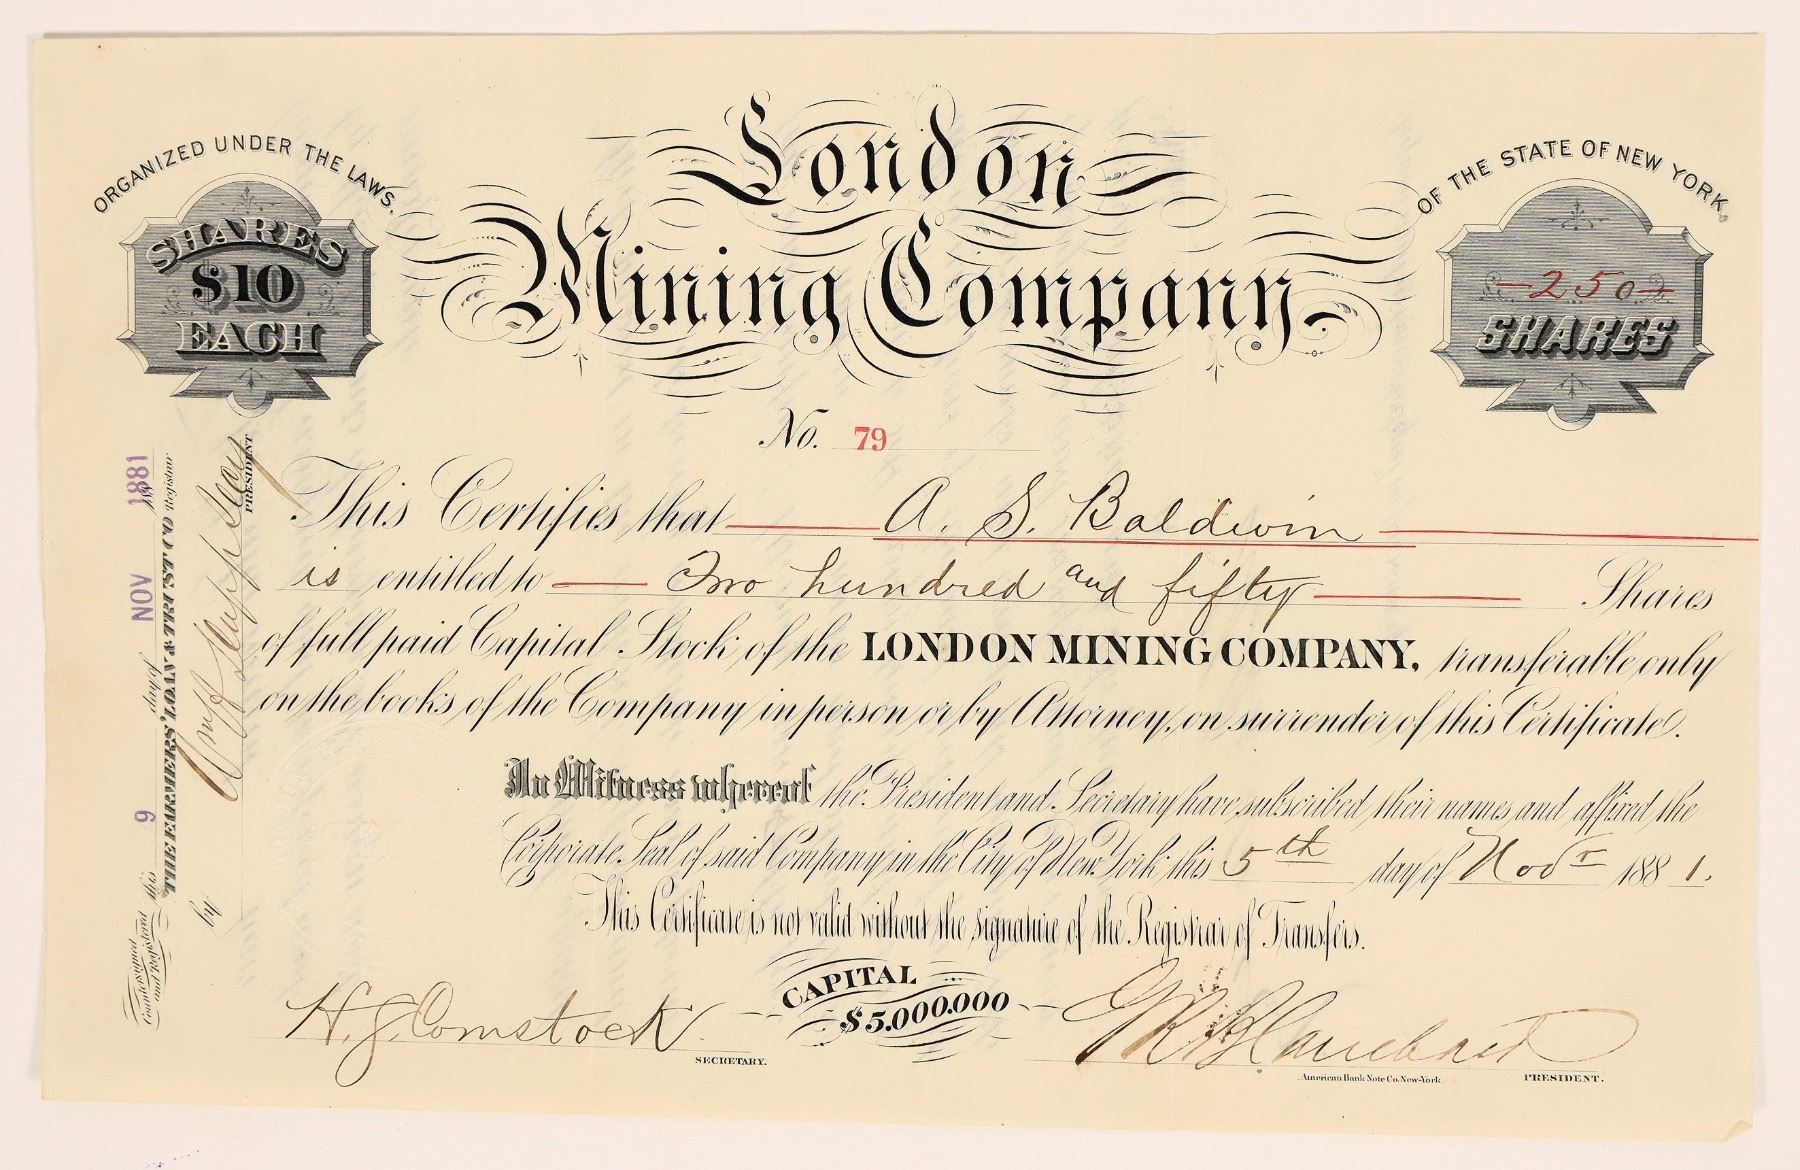 ORGANIZED UNDER THE LAWS.
OF THE STATE OF NEW YORK.
London
Mining Company
SHARES
$10
EACH
250
SHARES
No. 79
This Certifies that A. S. Baldwin
is entitled to Two hundred and fifty Shares
of full paid Capital Stock of the LONDON MINING COMPANY, transferable only
on the books of the Company in person or by Attorney, on surrender of this Certificate.
In Witness whereof the President and Secretary have subscribed their names and affixed the
Corporate Seal of said Company in the City of New York this 5th day of Novr 1881.
This Certificate is not valid without the signature of the Registrar of Transfers.
CAPITAL
$5,000,000
H. J. Comstock
SECRETARY.
PRESIDENT.
American Bank Note Co. New-York.
Countersigned
and Registered this 9 day of NOV 1881
THE FARMERS' LOAN & TRUST CO Registrar
by
PRESIDENT